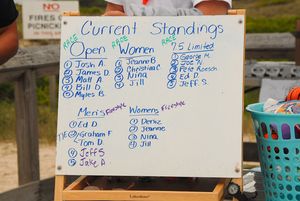 NO
FIRES
PICNICKING
Current Standings
RACE
Open
① Josh A.
② James D.
③ Matt A
④ Bill D
⑤ Myles B.
RACE
Women
① Jeanne B
② Christina C
③ Nina
④ Jill
RACE
7.5 Limited
① George H.
② Joe
③ Pete Roesch
④ Ed D.
⑤ Jeff S.
Men's Freestyle
① Ed D.
TIE ② Graham F
Tom D
④ Jeff S
⑤ Jake A
Womens Freestyle
① Deniz
② Jeanne
③ Nina
④ Jill